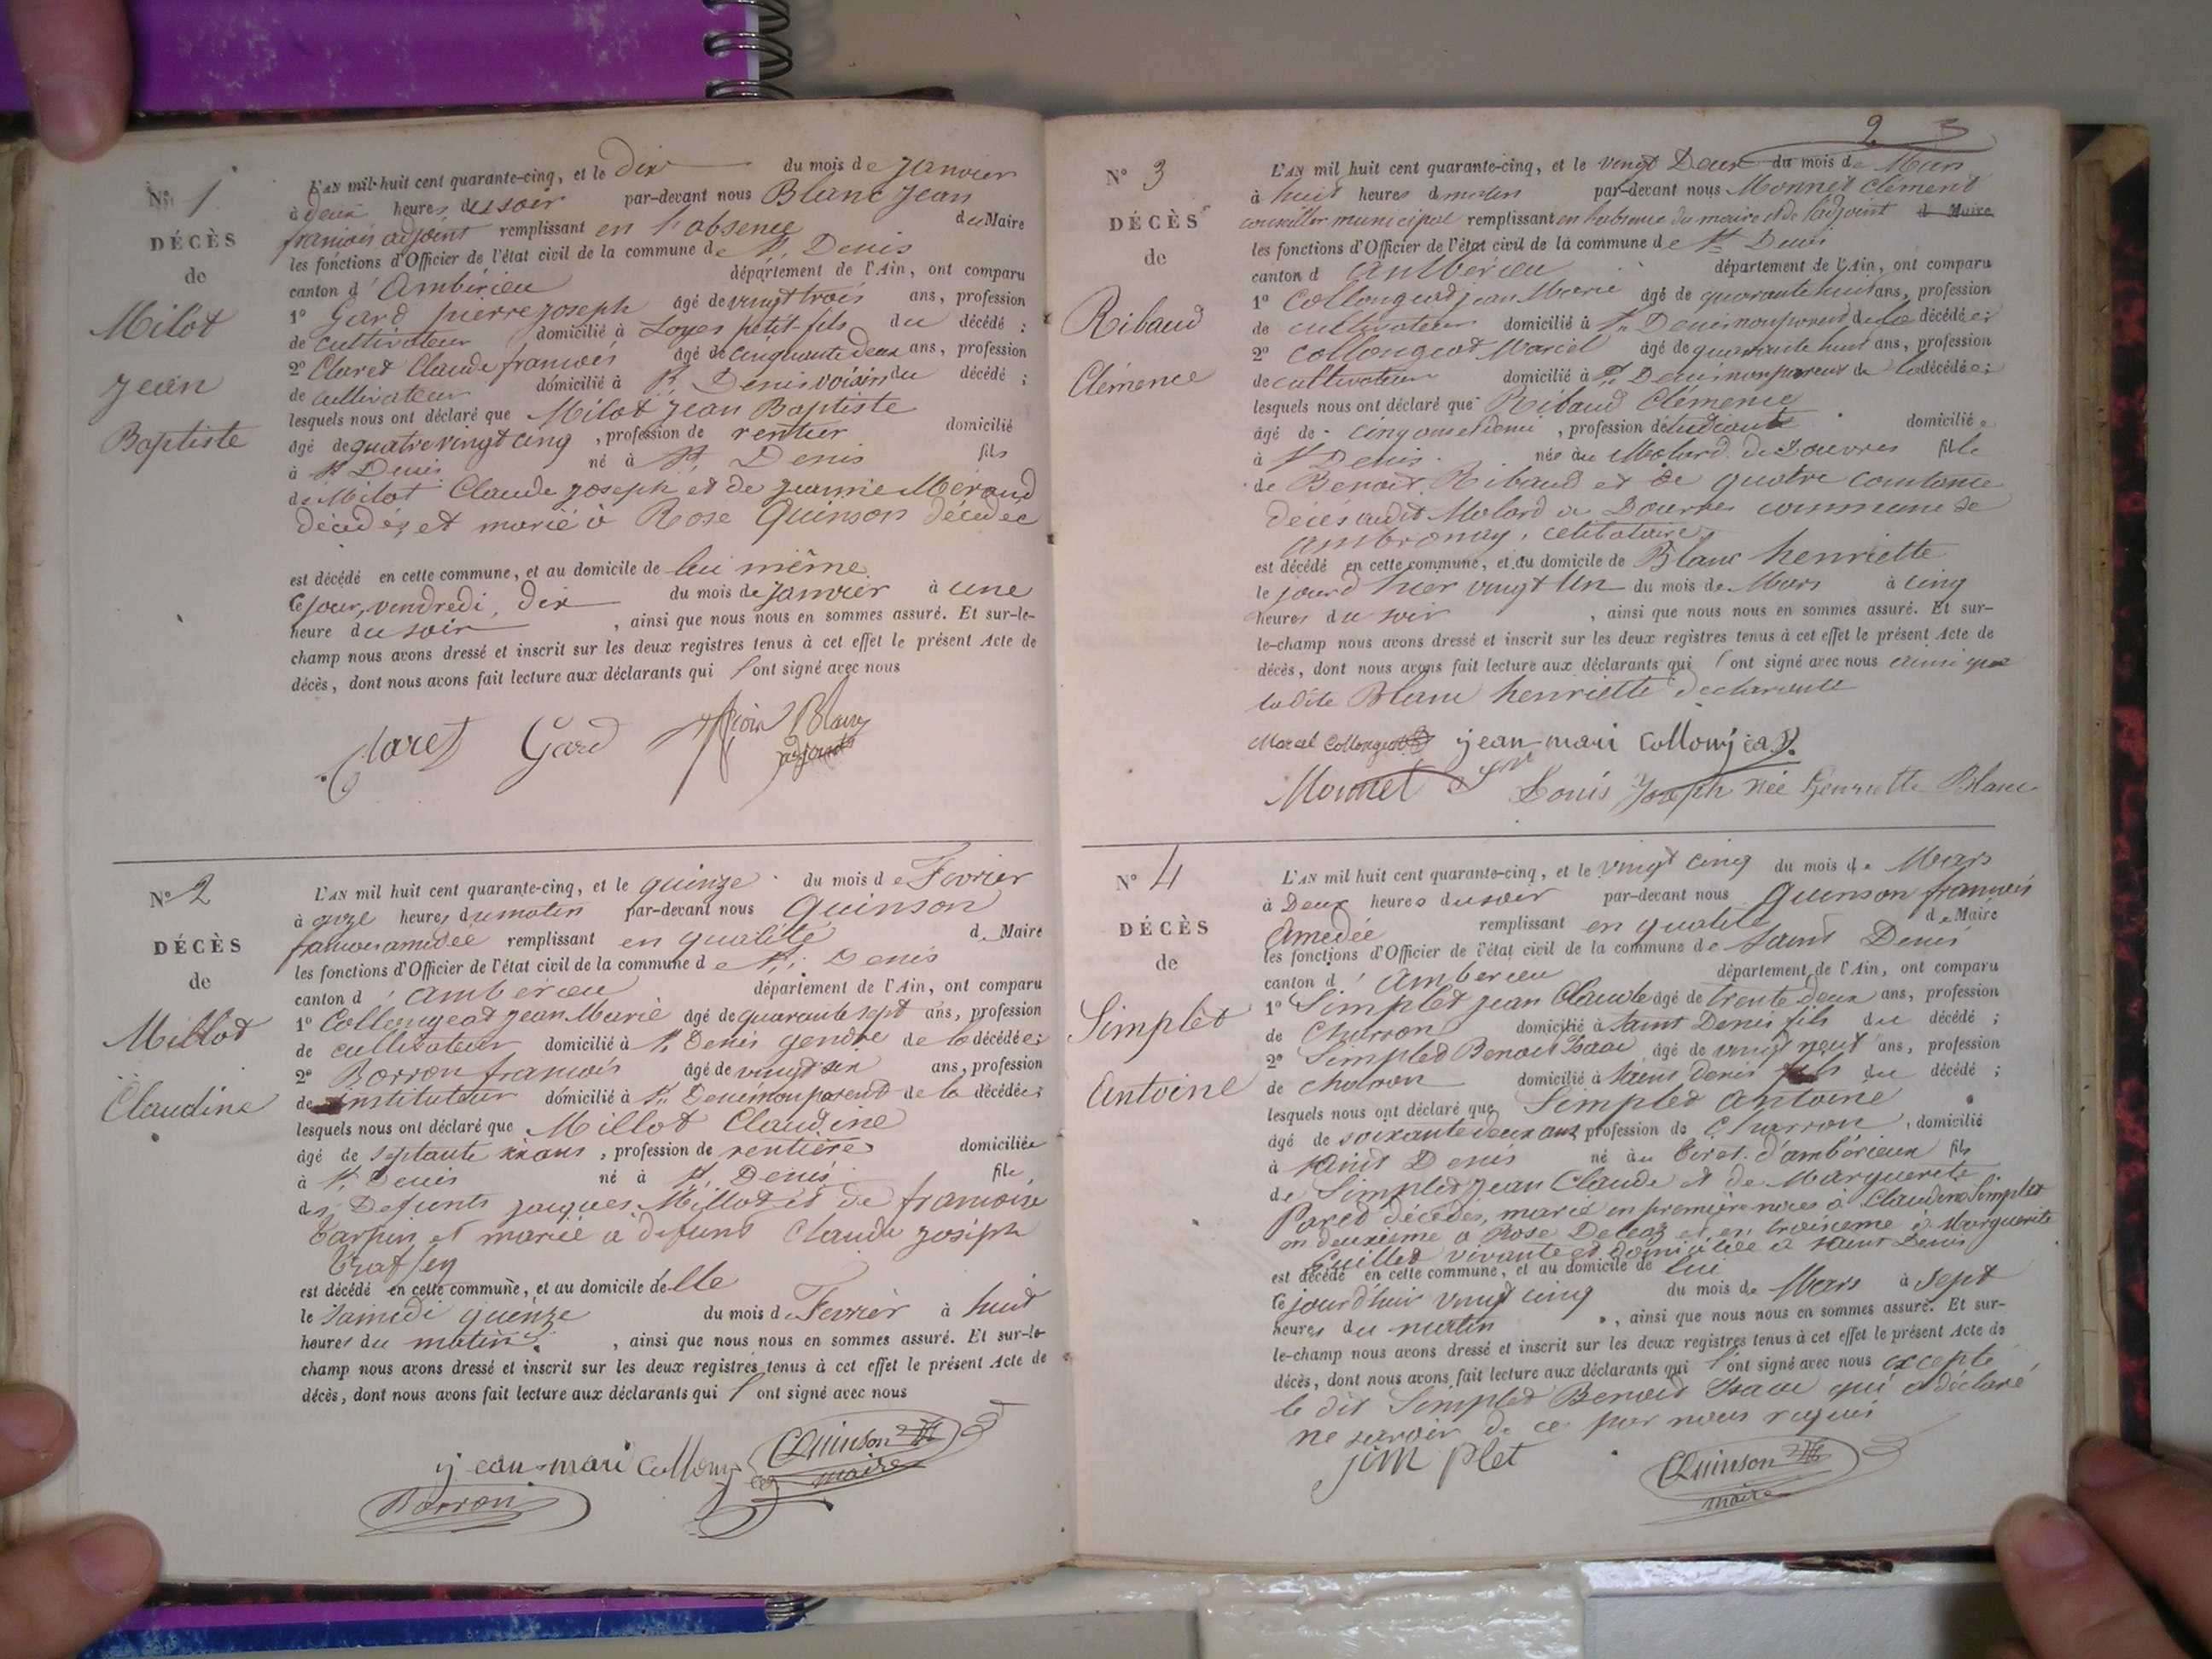 N° 1
DÉCÈS
de
Milot
Jean
Baptiste
L'AN mil huit cent quarante-cinq, et le dix du mois de Janvier
à deux heures du soir par-devant nous Blanc Jean
françois adjoint remplissant en l'absence du Maire
les fonctions d'Officier de l'état civil de la commune de St. Denis
canton d'Ambérieu département de l'Ain, ont comparu
1° Gard pierre joseph âgé de vingt trois ans, profession
de cultivateur domicilié à Loyes petit-fils du décédé ;
2° Claret Claude françois âgé de cinquante deux ans, profession
de cultivateur domicilié à St. Denis voisin du décédé ;
lesquels nous ont déclaré que Milot Jean Baptiste
âgé de quatre vingt cinq, profession de rentier domicilié
à St Denis né à St. Denis fils
de Milot Claude joseph et de jeanne Meraud
décédés, et marié à Rose Quinson décédée
est décédé en cette commune, et au domicile de lui même
ce jour, vendredi, dix du mois de janvier à une
heure du soir, ainsi que nous nous en sommes assuré. Et sur-le-
champ nous avons dressé et inscrit sur les deux registres tenus à cet effet le présent Acte de
décès, dont nous avons fait lecture aux déclarants qui l'ont signé avec nous
Claret Gard Blanc
adjoint
N° 2
DÉCÈS
de
Millot
Claudine
L'AN mil huit cent quarante-cinq, et le quinze du mois de Fevrier
à onze heures du matin par-devant nous Quinson
francois amédée remplissant en qualité de Maire
les fonctions d'Officier de l'état civil de la commune de St. Denis
canton d'amberieu département de l'Ain, ont comparu
1° Collongeat Jean Marie âgé de quarante sept ans, profession
de cultivateur domicilié à St. Denis gendre de la décédée ;
2° Borron francois âgé de vingt six ans, profession
de instituteur domicilié à St. Denis non parent de la décédée ;
lesquels nous ont déclaré que Millot Claudine
âgé de septante ans, profession de rentière domiciliée
à St. Denis né à St. Denis fille
des Defunts jacques Millot et de francoise
Tarpin et mariée a defunt Claude joseph
est décédé en cette commune, et au domicile d'elle
le samedi quinze du mois de Fevrier à huit
heures du matin, ainsi que nous nous en sommes assuré. Et sur-le-
champ nous avons dressé et inscrit sur les deux registres tenus à cet effet le présent Acte de
décès, dont nous avons fait lecture aux déclarants qui l'ont signé avec nous
jean mari Collongeat Quinson
maire
Borron
2 3
N° 3
DÉCÈS
de
Ribaud
Clémence
L'AN mil huit cent quarante-cinq, et le vingt Deux du mois de Mars
à huit heures du matin par-devant nous Monnet Clément
conseiller municipal remplissant en l'absence du maire et de l'adjoint d Maire
les fonctions d'Officier de l'état civil de la commune de St Denis
canton d'Ambérieu département de l'Ain, ont comparu
1° Collongeat jean Marie âgé de quarante huit ans, profession
de cultivateur domicilié à St. Denis non parent de la décédée ;
2° Collongeat Marcel âgé de quarante huit ans, profession
de cultivateur domicilié à St. Denis non parent de la décédée ;
lesquels nous ont déclaré que Ribaud Clémence
âgé de cinq ans et demi, profession de domiciliée
à St Denis née au Molard de Douvres fille
de Benoit Ribaud et de quatre constance
décés audit Molard de Douvres commune de
Ambronay, celibataire
est décédé en cette commune, et au domicile de Blanc henriette
le jourd hier vingt Un du mois de Mars à cinq
heures du soir, ainsi que nous nous en sommes assuré. Et sur-
le-champ nous avons dressé et inscrit sur les deux registres tenus à cet effet le présent Acte de
décès, dont nous avons fait lecture aux déclarants qui l'ont signé avec nous ainsi que
ladite Blanc henriette declarente
Marcel Collongeat jean mari Collongeat
Monnet Louis Joseph née Henriette Blanc
N° 4
DÉCÈS
de
Simplet
Antoine
L'AN mil huit cent quarante-cinq, et le vingt cinq du mois de Mars
à Deux heures du soir par-devant nous Quinson francois
Amedée remplissant en qualité de Maire
les fonctions d'Officier de l'état civil de la commune de Saint Denis
canton d'Amberieu département de l'Ain, ont comparu
1° Simplet Jean Claude âgé de trente deux ans, profession
de Charron domicilié à Saint Denis fils du décédé ;
2° Simplet Benoit Isaac âgé de vingt neuf ans, profession
de charron domicilié à Saint Denis fils du décédé ;
lesquels nous ont déclaré que Simplet Antoine
âgé de soixante deux ans profession de Charron, domicilié
à Saint Denis né au Tiret d'ambérieux fils
de Simplet Jean Claude et de Marguerite
Paret décédés, marié en première noces à Claudine Simplet
en deuxieme a Rose et en troisieme à Marguerite
Guillet vivante et domiciliée à Saint Denis
est décédé en cette commune, et au domicile de lui
ce jourd'hui vingt cinq du mois de Mars à sept
heures du matin, ainsi que nous nous en sommes assuré. Et sur-
le-champ nous avons dressé et inscrit sur les deux registres tenus à cet effet le présent Acte de
décès, dont nous avons fait lecture aux déclarants qui l'ont signé avec nous excepté
le dit Simplet Benoit Isaac qui a déclaré
ne savoir de ce par nous requis
simplet Quinson
maire